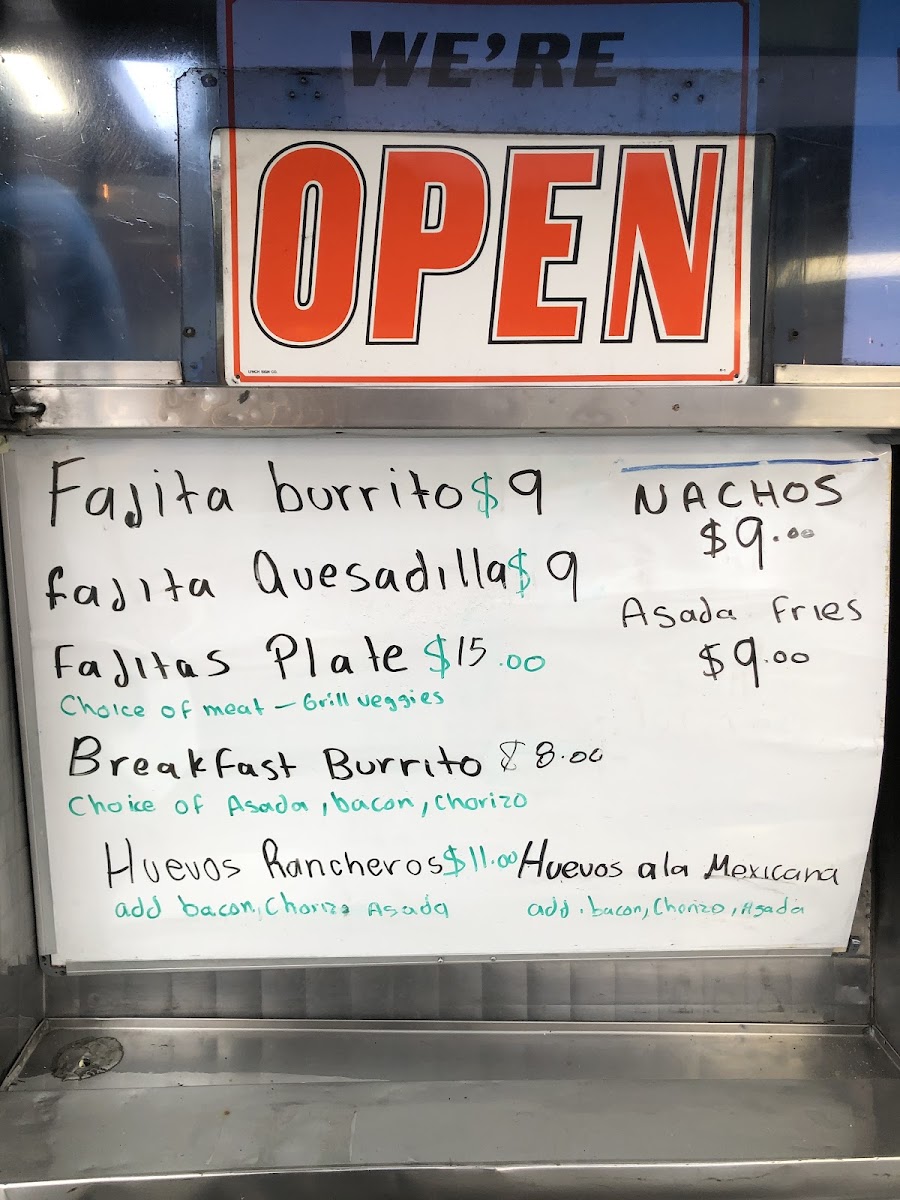 WE'RE
OPEN
Fajita burrito $9
fajita Quesadilla $9
Fajitas Plate $15.00
Choice of meat – Grill veggies
Breakfast Burrito $8.00
Choice of Asada, bacon, Chorizo
Huevos Rancheros $11.00
add bacon, Chorizo Asada
NACHOS
$9.00
Asada fries
$9.00
Huevos ala Mexicana
add. bacon, Chorizo, Asada